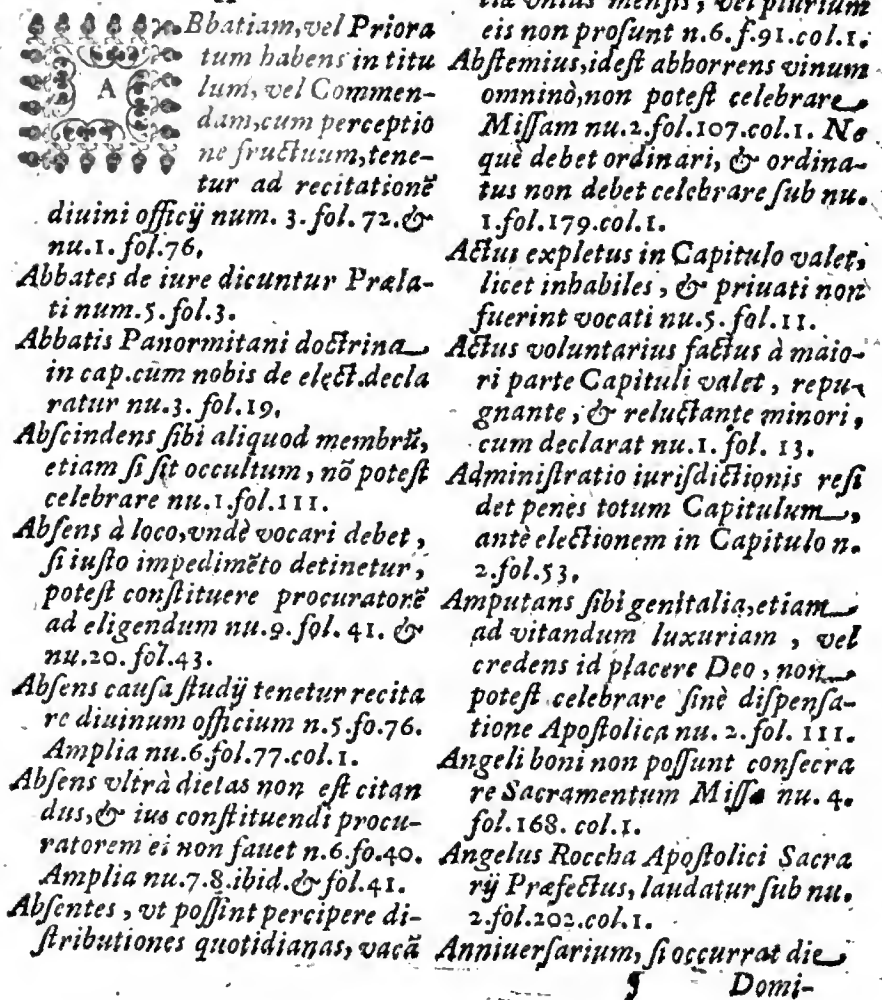 A
Bbatiam, vel Priora
tum habens in titu
lum, vel Commen-
dam, cum perceptio
ne fructuum, tene-
tur ad recitationẽ
diuini officij num. 3. fol. 72. &
nu. 1. fol. 76.
Abbates de iure dicuntur Præla-
ti num. 5. fol. 3.
Abbatis Panormitani doctrina
in cap. cùm nobis de elect. decla
ratur nu. 3. fol. 19.
Abſcindens ſibi aliquod membrũ,
etiam ſi ſit occultum, nõ poteſt
celebrare nu. 1. fol. 111.
Abſens à loco, vndè vocari debet,
ſi iuſto impedimẽto detinetur,
poteſt conſtituere procuratorẽ
ad eligendum nu. 9. fol. 41. &
nu. 20. fol. 43.
Abſens cauſa ſtudij tenetur recita
re diuinum officium n. 5. fo. 76.
Amplia nu. 6. fol. 77. col. 1.
Abſens vltrà dietas non eſt citan
dus, & ius conſtituendi procu-
ratorem ei non fauet n. 6. fo. 40.
Amplia nu. 7. 8. ibid. & fol. 41.
Abſentes, vt poſſint percipere di-
ſtributiones quotidianas, vacã
vnius menſis, vel plurium
eis non proſunt n. 6. f. 91. col. 1.
Abſtemius, ideſt abhorrens vinum
omninò, non poteſt celebrare
Miſſam nu. 2. fol. 107. col. 1. Ne
què debet ordinari, & ordina-
tus non debet celebrare ſub nu.
1. fol. 179. col. 1.
Actus expletus in Capitulo valet,
licet inhabiles, & priuati non
fuerint vocati nu. 5. fol. 11.
Actus voluntarius factus à maio-
ri parte Capituli valet, repu-
gnante, & reluctante minori,
cum declarat nu. 1. fol. 13.
Adminiſtratio iuriſdictionis reſi
det penès totum Capitulum,
antè electionem in Capitulo n.
2. fol. 53.
Amputans ſibi genitalia, etiam
ad vitandum luxuriam, vel
credens id placere Deo, non
poteſt celebrare ſinè diſpenſa-
tione Apoſtolica nu. 2. fol. 111.
Angeli boni non poſſunt conſecra
re Sacramentum Miſſæ nu. 4.
fol. 168. col. 1.
Angelus Roccha Apoſtolici Sacra
rij Præfectus, laudatur ſub nu.
2. fol. 202. col. 1.
Anniuerſarium, ſi occurrat die
Domi-